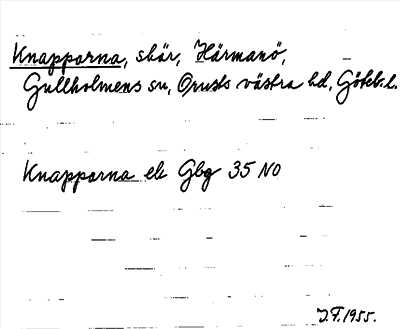 Knapparna, skär, Härmanö,
Gullholmens sn, Orusts västra hd, Göteb.l.
Knapparna ek Gbg 35 NO
J.F. 1955.